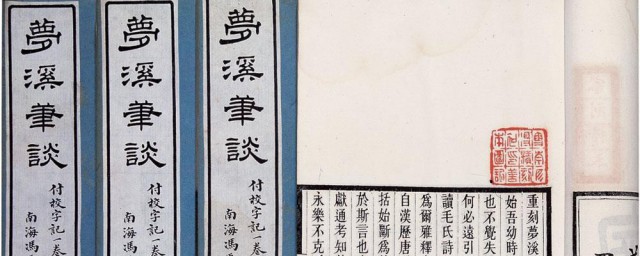 夢溪筆談
付校字記一卷
南海馮
夢溪筆談
付校字記一卷
南海馮
夢溪筆談
付校字記一卷
南海馮
重刻夢溪
始吾幼時
也不覺失
何必遠引
讀毛氏詩
爲爾雅釋
自漢歷唐
於斯言也
括始斷爲
獻通考知
永樂不克